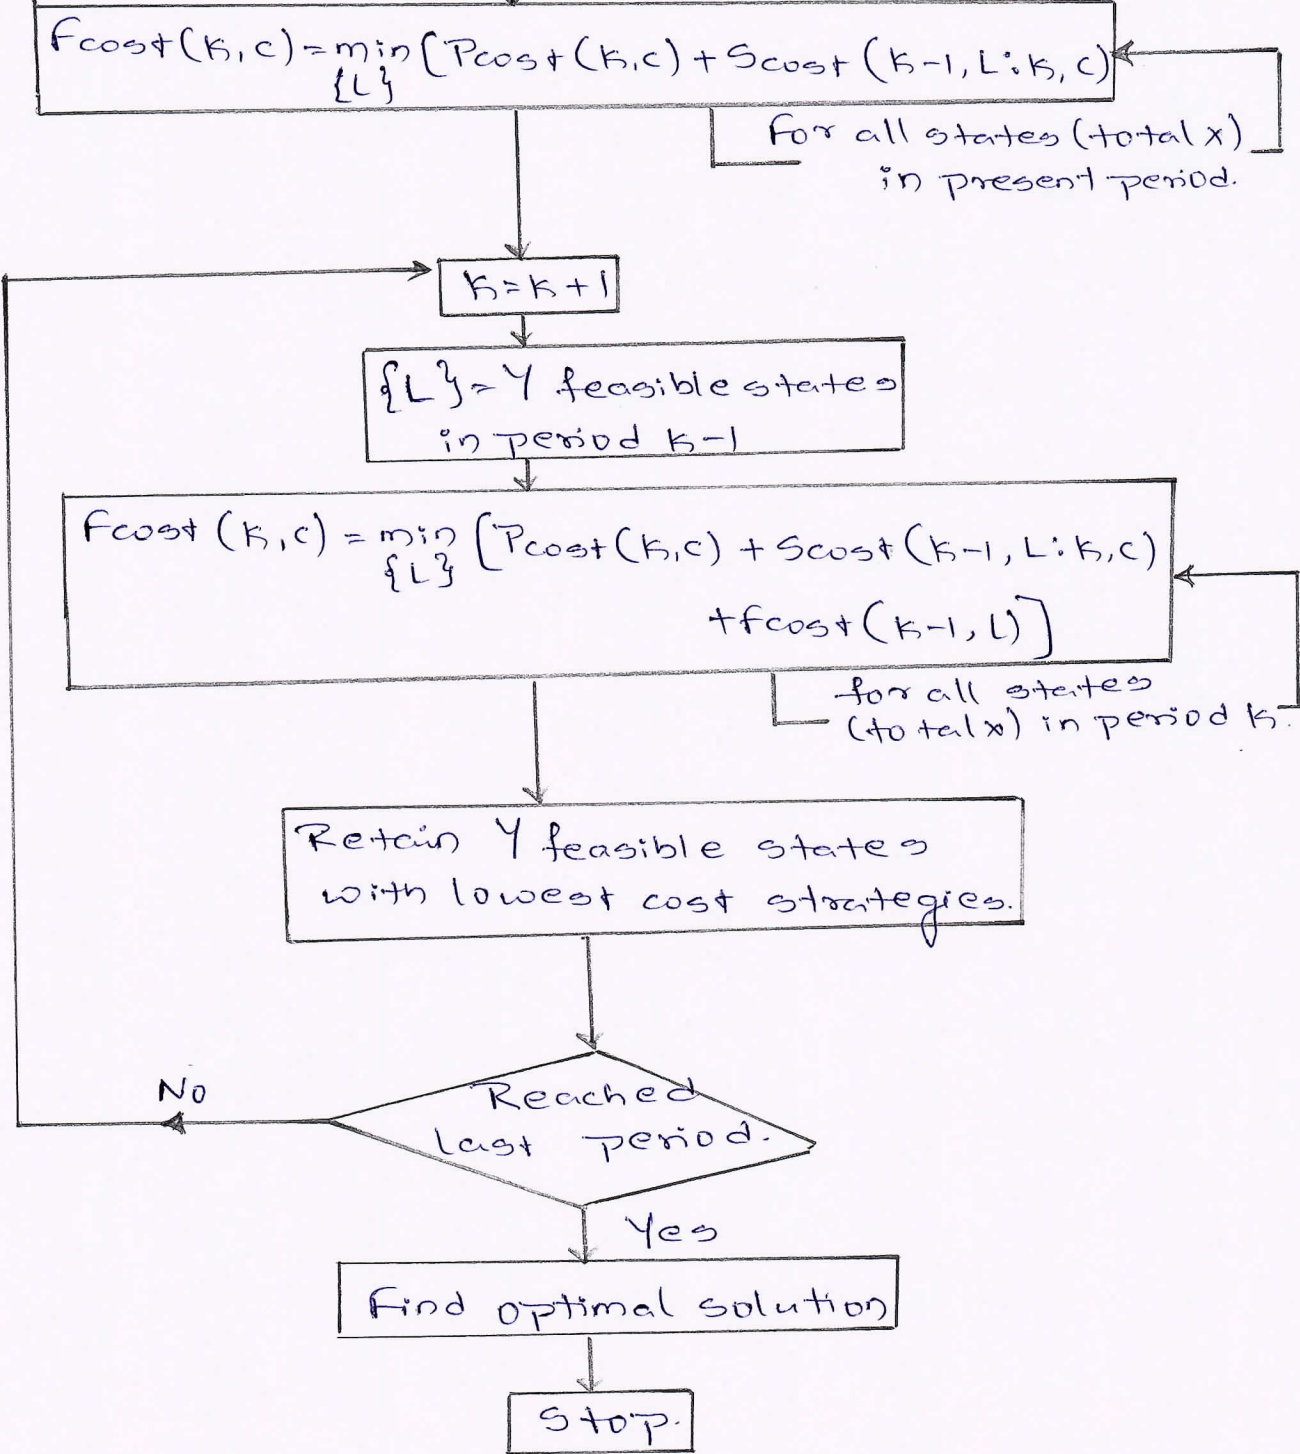 Fcost(K,C)=min(Pcost(K,C)+Scost(K-1,L:K,C)
{L}
For all states (total x)
in present period.
K=K+1
{L}=Y feasible states
in period K-1
Fcost (K,C) = min [Pcost(K,C) + Scost(K-1,L:K,C)
{L}
+fcost(K-1,L)]
for all states
(total x) in period K.
Retain Y feasible states
with lowest cost strategies.
No
Reached
last period.
Yes
Find optimal solution
Stop.